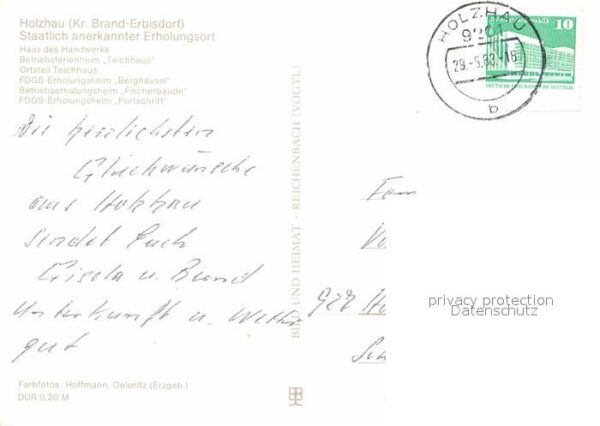 Holzhau (Kr. Brand-Erbisdorf)
Staatlich anerkannter Erholungsort
Haus des Handwerks
Betriebsferienheim „Teichhaus"
Ortsteil Teichhaus
FDGB-Erholungsheim „Berghäusel"
Betriebserholungsheim „Fischerbaude"
FDGB-Erholungsheim „Fortschritt"
HOLZHAU
29.-6.83.-16
b
10
DEUTSCHE DEMOKRATISCHE REPUBLIK
Die herzlichsten
Glückwünsche
aus Holzhau
sendet Euch
Gisela u. Bernd
Unterkunft u. Wetter
gut
BILD UND HEIMAT · REICHENBACH (VOGTL)
Fam
privacy protection
Datenschutz
Farbfotos: Hoffmann, Oelsnitz (Erzgeb.)
DDR 0,20 M